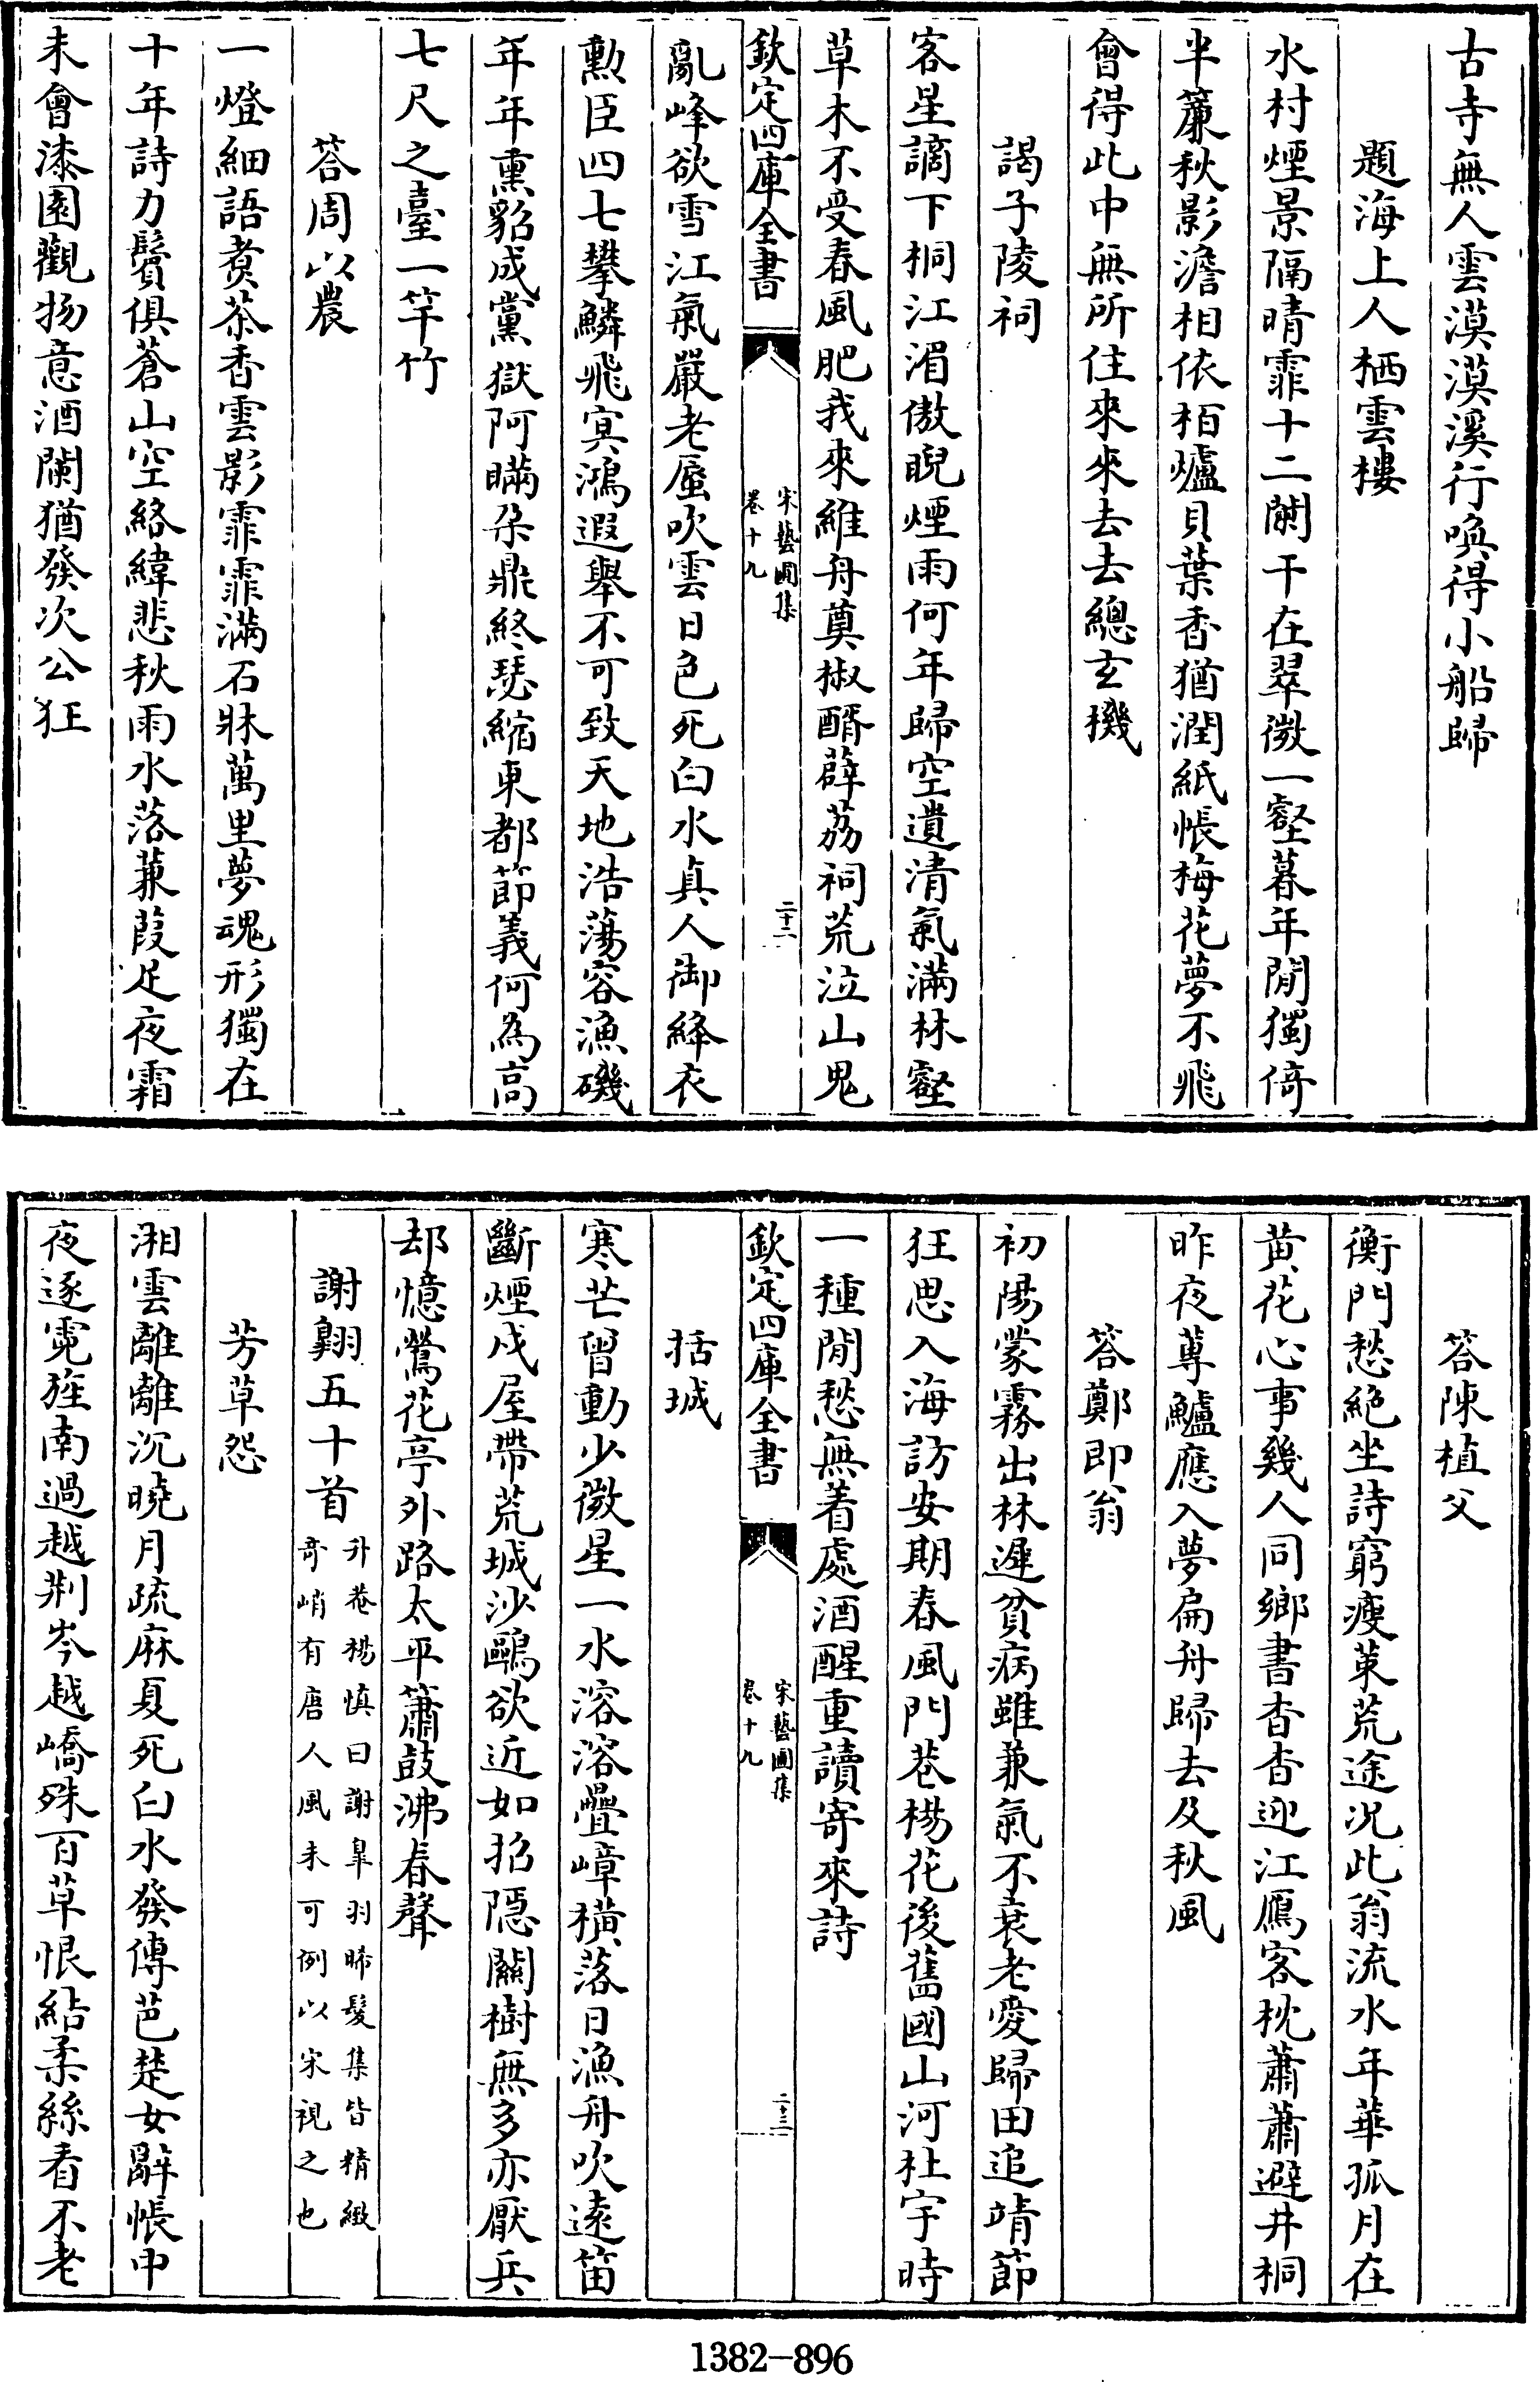 古寺無人雲漠漠溪行喚得小船歸
題海上人栖雲樓
水村煙景隔晴霏十二闌干在翠微一壑暮年閒獨倚
半簾秋影澹相依栢爐貝葉香猶潤紙帳梅花夢不飛
會得此中無所住來來去去總玄機
謁子陵祠
客星謫下桐江湄傲睨煙雨何年歸空遺清氣滿林壑
草木不受春風肥我來維舟奠椒醑薜荔祠荒泣山鬼
欽定四庫全書
宋藝圃集
卷十九
二十二
亂峰欲雪江氣嚴老蜃吹雲日色死白水真人御絳衣
勳臣四七攀鱗飛冥鴻遐舉不可致天地浩蕩容漁磯
年年熏貂成黨獄阿瞞朶鼎終瑟縮東都節義何為高
七尺之臺一竿竹
答周以農
一燈細語煑茶香雲影霏霏滿石牀萬里夢魂形獨在
十年詩力鬢俱蒼山空絡緯悲秋雨水落蒹葭足夜霜
未會漆園觀物意酒闌猶發次公狂
答陳植父
衡門愁絕坐詩窮瘦菓荒途况此翁流水年華孤月在
黄花心事幾人同鄉書杳杳迎江鴈客枕蕭蕭避井桐
昨夜蓴鱸應入夢扁舟歸去及秋風
答鄭即翁
初陽蒙霧出林遲貧病雖兼氣不衰老愛歸田追靖節
狂思入海訪安期春風門巷楊花後舊國山河杜宇時
一種閒愁無着處酒醒重讀寄來詩
欽定四庫全書
宋藝圃集
卷十九
二十三
括城
寒芒曾動少微星一水溶溶疊嶂横落日漁舟吹遠笛
斷煙戍屋帶荒城沙鷗欲近如招隱關樹無多亦厭兵
却憶鶯花亭外路太平簫鼓沸春聲
謝翶五十首
升菴楊慎曰謝臯羽晞髪集皆精緻
奇峭有唐人風未可例以宋視之也
芳草怨
湘雲離離沉曉月疏麻夏死白水發傳芭楚女辭帳中
夜逐霓旌南過越荆岑越嶠殊百草恨結柔絲看不老
1382-896